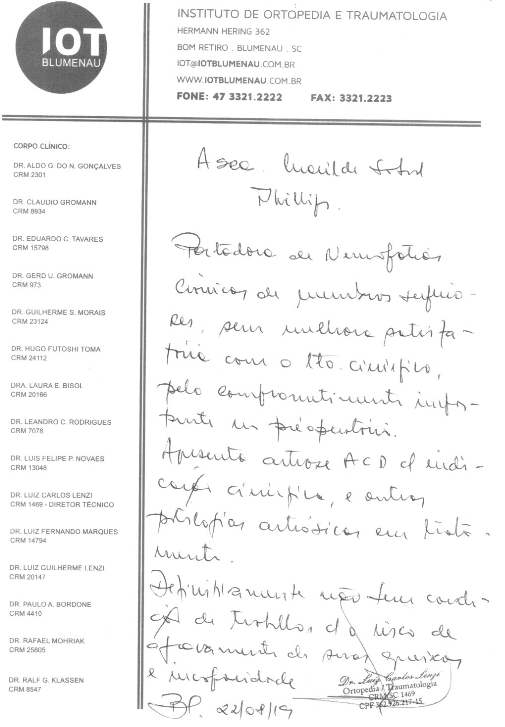 IOT
BLUMENAU
INSTITUTO DE ORTOPEDIA E TRAUMATOLOGIA
HERMANN HERING 362
BOM RETIRO . BLUMENAU . SC
IOT@IOTBLUMENAU.COM.BR
WWW.IOTBLUMENAU.COM.BR
FONE: 47 3321.2222 FAX: 3321.2223
CORPO CLÍNICO:
DR. ALDO G. DO N. GONÇALVES
CRM 2301
DR. CLAUDIO GROMANN
CRM 8934
DR. EDUARDO C. TAVARES
CRM 15798
DR. GERD U. GROMANN
CRM 973
DR. GUILHERME S. MORAIS
CRM 23124
DR. HUGO FUTOSHI TOMA
CRM 24112
DRA. LAURA E. BISOL
CRM 20166
DR. LEANDRO C. RODRIGUES
CRM 7078
DR. LUIS FELIPE P. NOVAES
CRM 13048
DR. LUIZ CARLOS LENZI
CRM 1469 - DIRETOR TÉCNICO
DR. LUIZ FERNANDO MARQUES
CRM 14794
DR. LUIZ GUILHERME LENZI
CRM 20147
DR. PAULO A. BORDONE
CRM 4410
DR. RAFAEL MOHRIAK
CRM 25805
DR. RALF G. KLASSEN
CRM 8547
A sra.
Phillips.
Portadora de Neuropatias
Crônicas de membros inferio-
res, sem melhora satisfa-
tória com o tto. cirúrgico,
pelo comprometimento impor-
tante no préoperatório.
Apresenta artrose ACD c/ indi-
cação cirúrgica, e outras
patologias artrósicas em trata-
mento.
Definitivamente não tem condi-
ção de trabalho d o risco de
agravamento de suas queixas
e incapacidade
Bl. 22/08/19
Dr. Luiz Carlos Lenzi
Ortopedia / Traumatologia
CRM/SC 1469
CPF 362.926.217-15